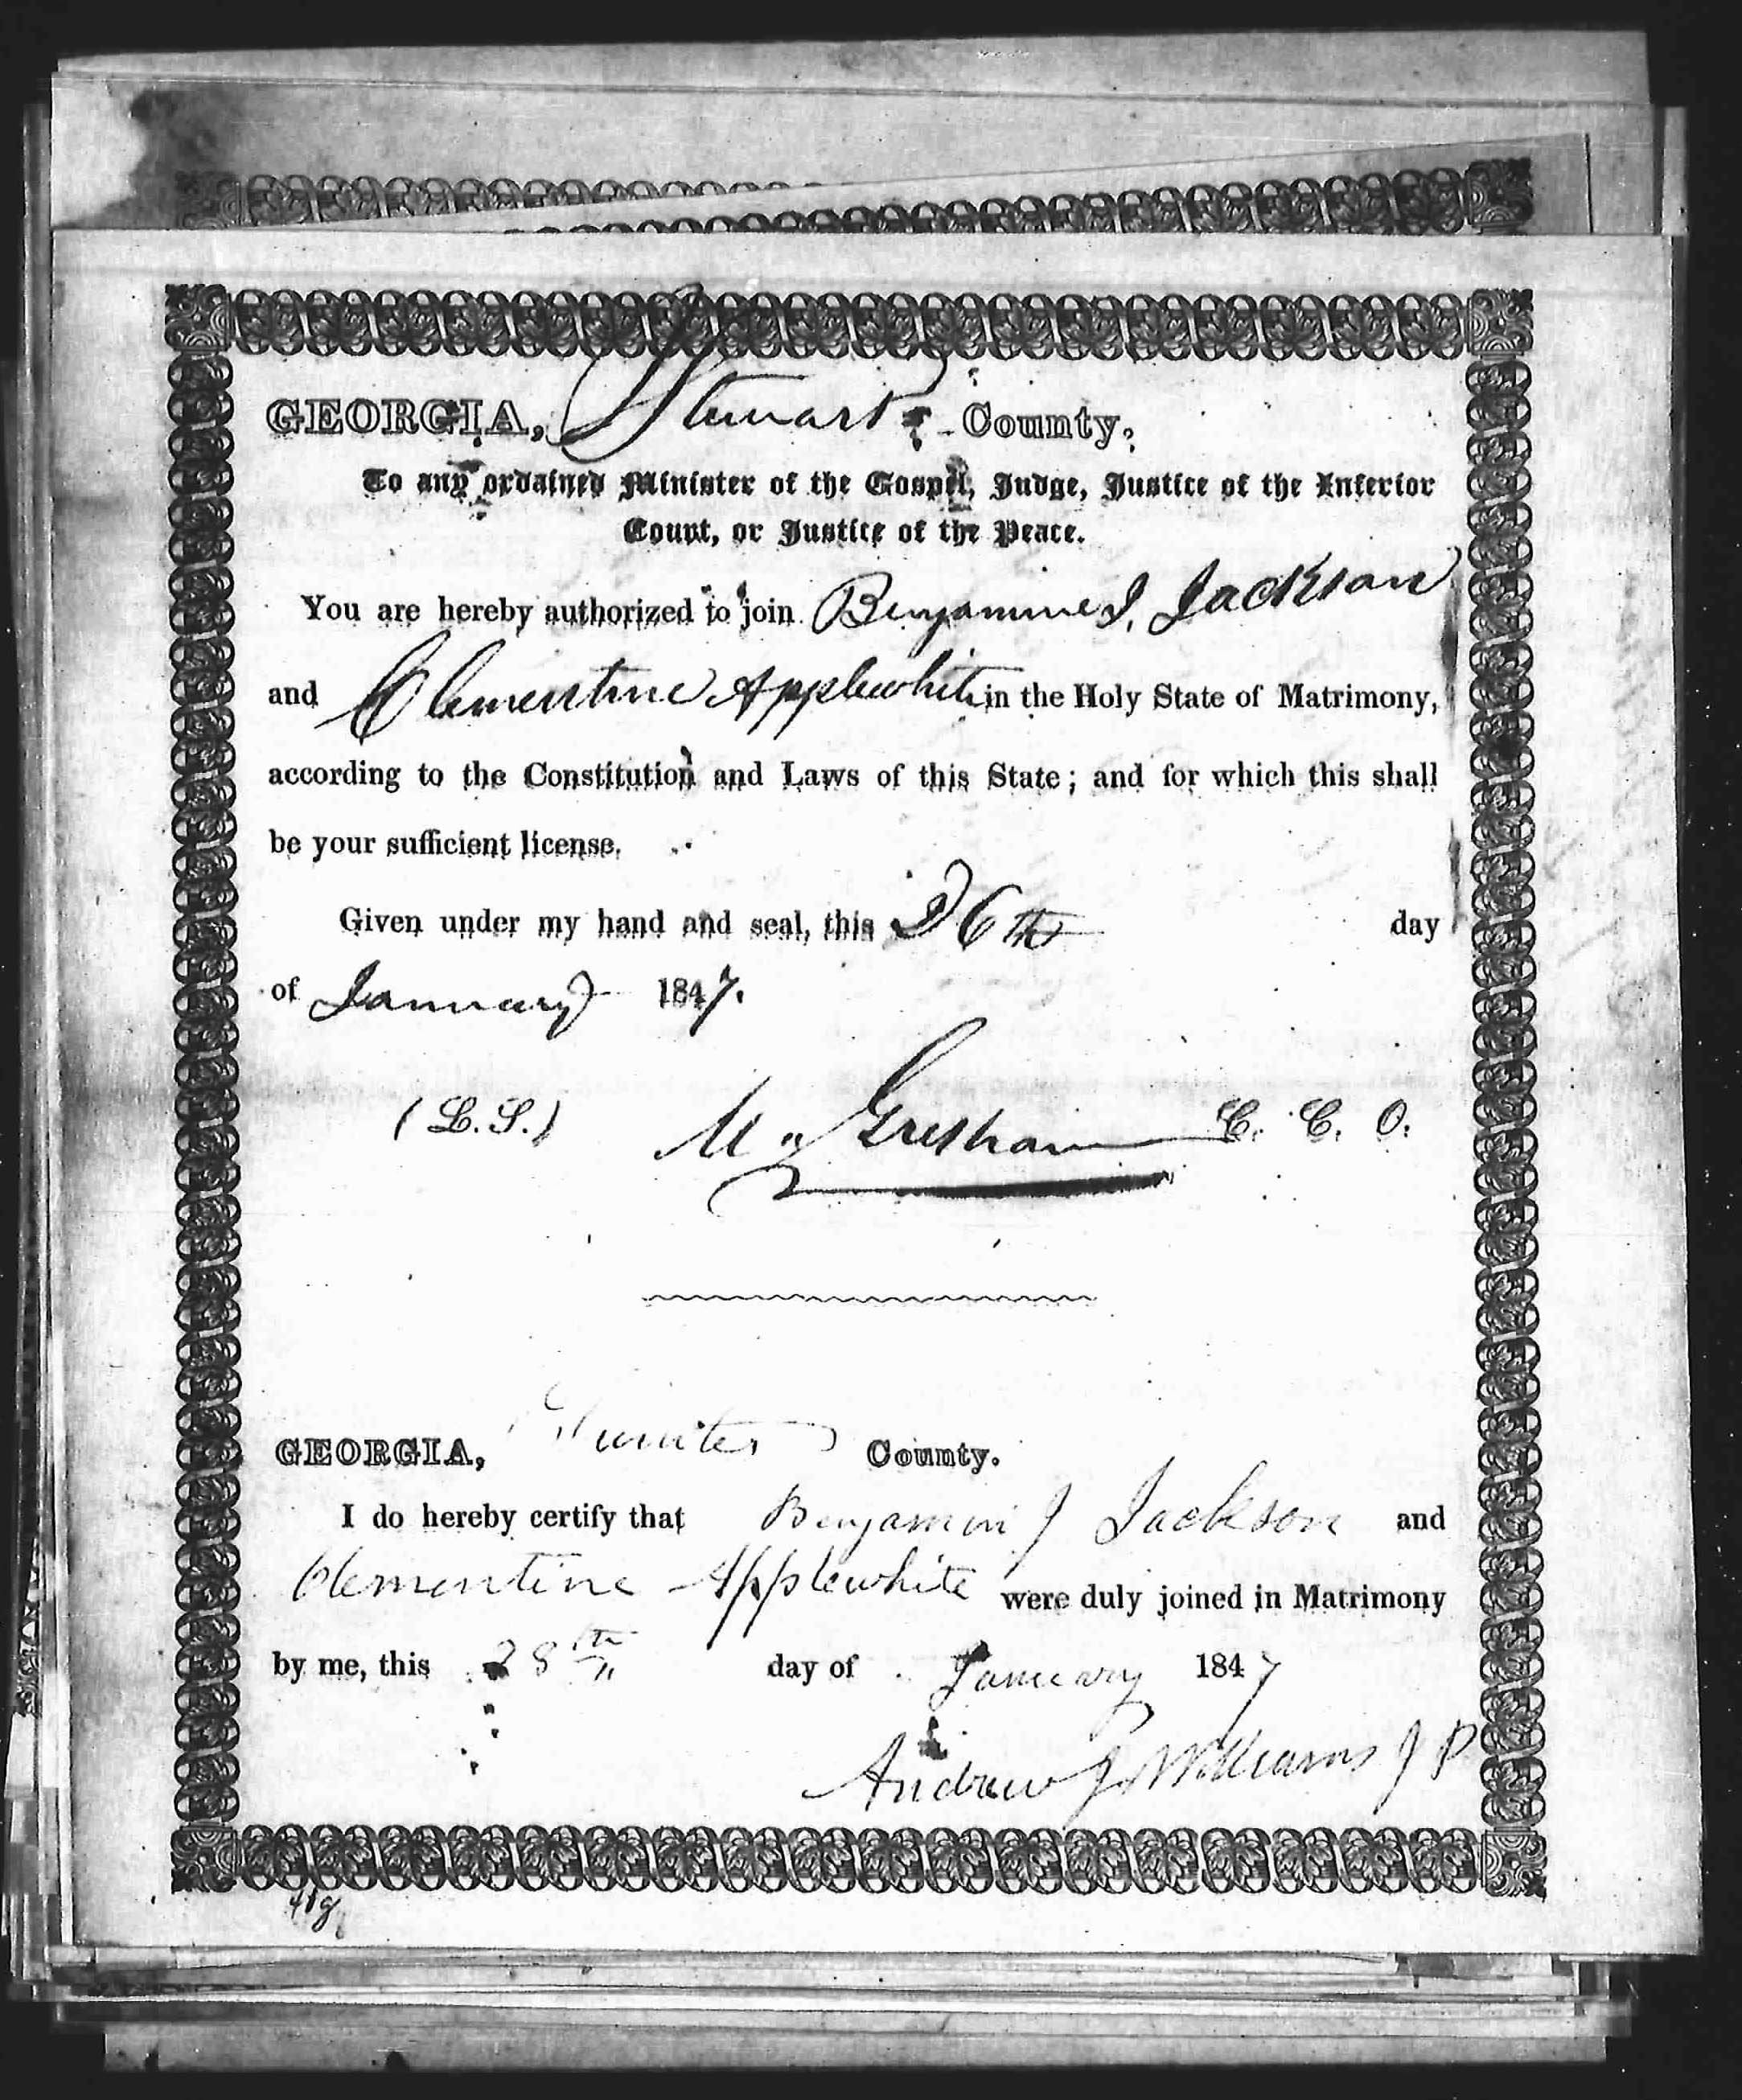 GEORGIA, Stewart County,
To any ordained Minister of the Gospel, Judge, Justice of the Inferior
Court, or Justice of the Peace.
You are hereby authorized to join Benjamine J. Jackson
and Clementine Applewhite in the Holy State of Matrimony,
according to the Constitution and Laws of this State; and for which this shall
be your sufficient license.
Given under my hand and seal, this 26th day
of January 1847.
(L.S.) M. Gresham C. C. O.
GEORGIA, Sumter County.
I do hereby certify that Benjamin J Jackson and
Clementine Applewhite were duly joined in Matrimony
by me, this 28th day of January 1847
Andrew J Williams J P